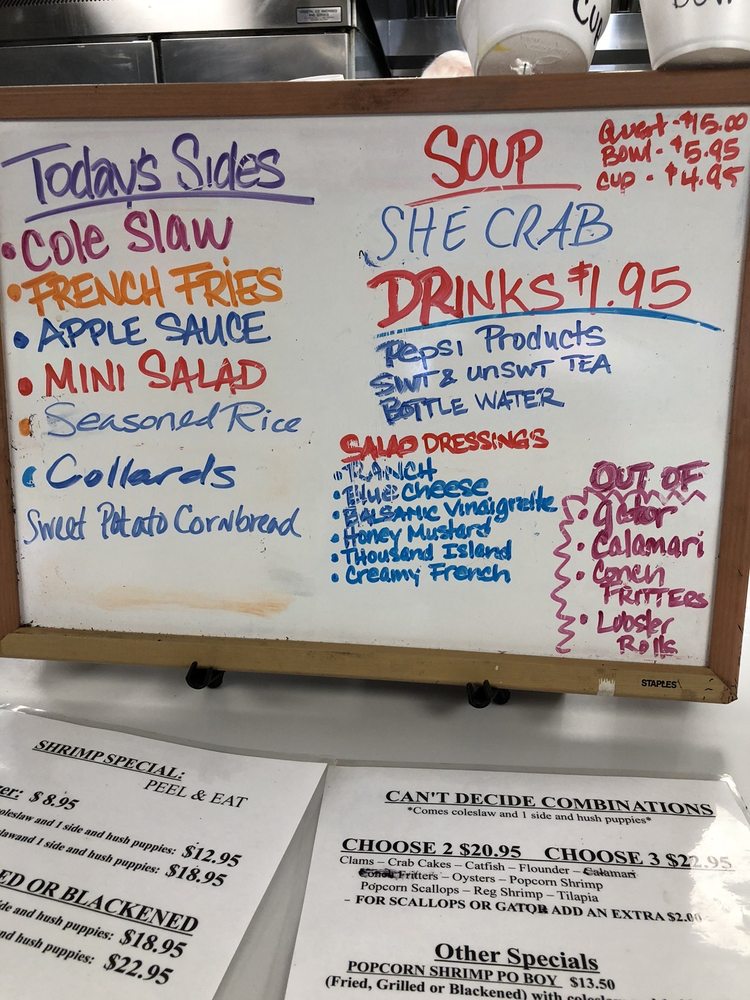 Today's Sides
• Cole Slaw
• FRENCH FRIES
• APPLE SAUCE
• MINI SALAD
• Seasoned Rice
• Collards
Sweet Potato Cornbread
SOUP
Quart - $15.00
Bowl - $5.95
Cup - $4.95
SHE CRAB
DRINKS $1.95
Pepsi Products
SWT & UNSWT TEA
BOTTLE WATER
SALAD DRESSINGS
• RANCH
• Blue Cheese
• BALSAMIC Vinaigrette
• Honey Mustard
• Thousand Island
• Creamy French
OUT OF
• gator
• Calamari
• Conch
FRITTERS
• Lobster
Rolls
STAPLES
SHRIMP SPECIAL:
PEEL & EAT
er: $8.95
oleslaw and 1 side and hush puppies: $12.95
slawand 1 side and hush puppies: $18.95
ED OR BLACKENED
de and hush puppies: $18.95
nd hush puppies: $22.95
CAN'T DECIDE COMBINATIONS
*Comes coleslaw and 1 side and hush puppies*
CHOOSE 2 $20.95 CHOOSE 3 $22.95
Clams – Crab Cakes – Catfish – Flounder – Calamari
Fritters – Oysters – Popcorn Shrimp
Popcorn Scallops – Reg Shrimp – Tilapia
- FOR SCALLOPS OR GATOR ADD AN EXTRA $2.00
Other Specials
POPCORN SHRIMP PO BOY $13.50
(Fried, Grilled or Blackened) with coles